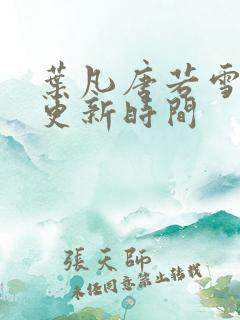 葉凡唐若雪
更新時間
張天師
未經同意禁止轉載